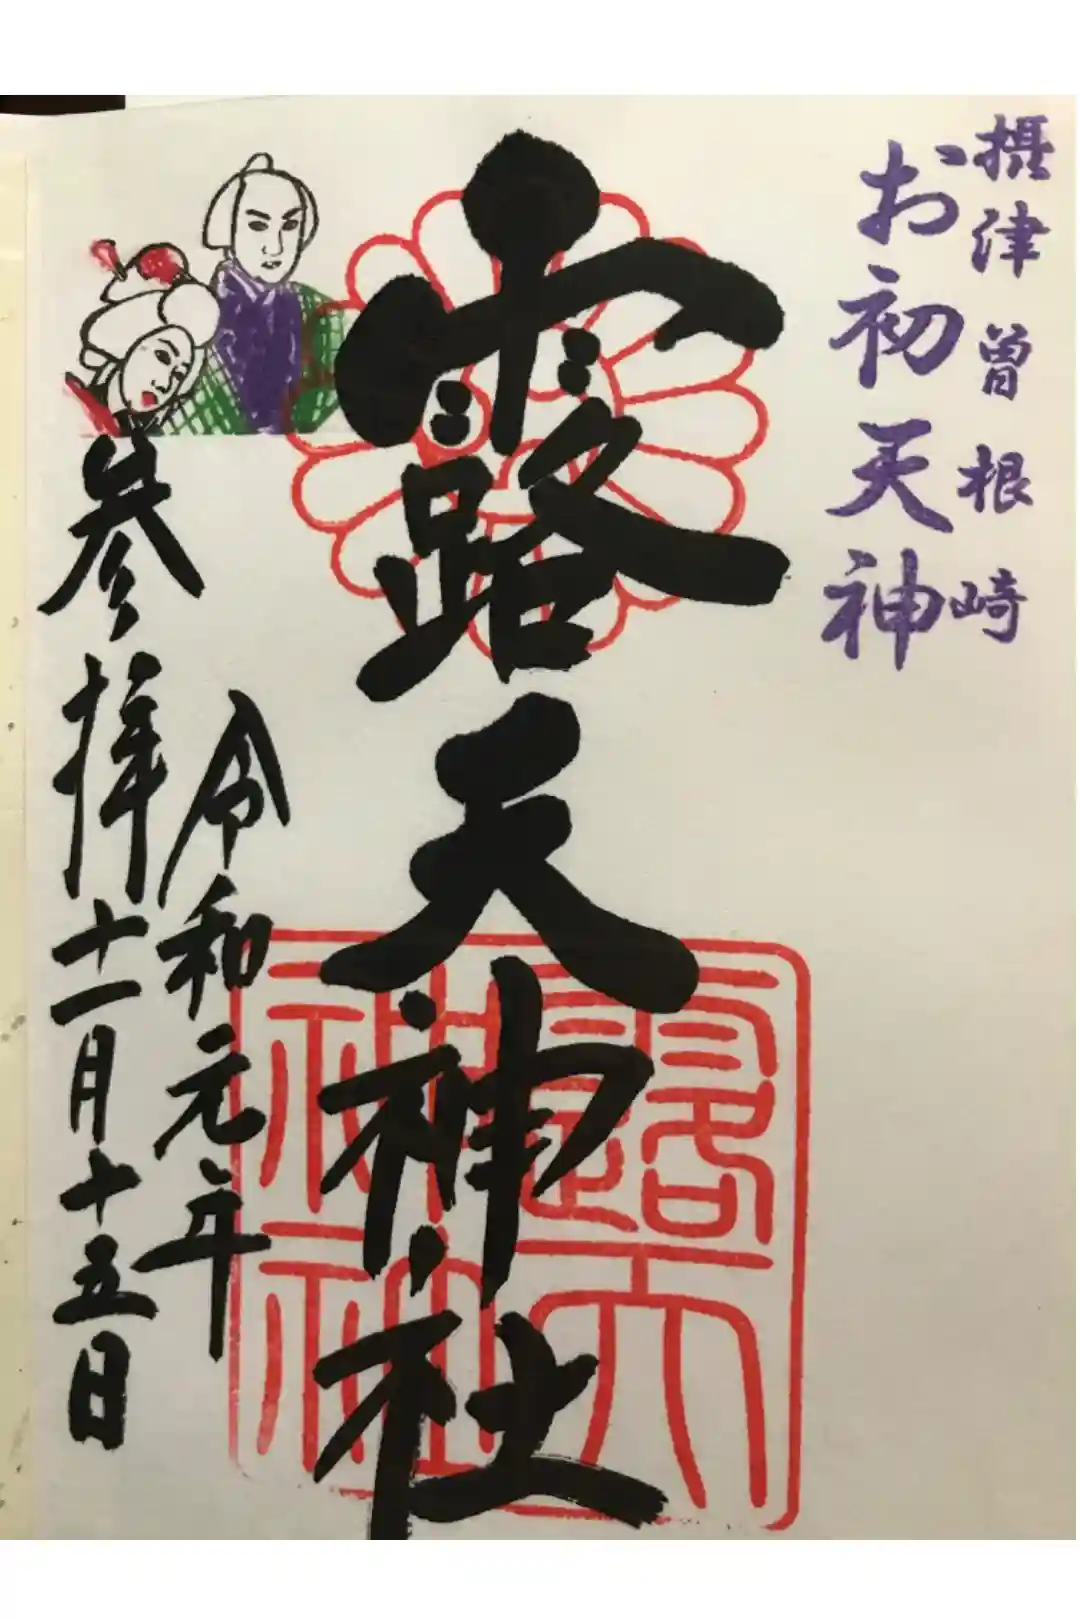 摂津曽根崎
お初天神
露天神社
令和元年
参拝十一月十五日
露天神社